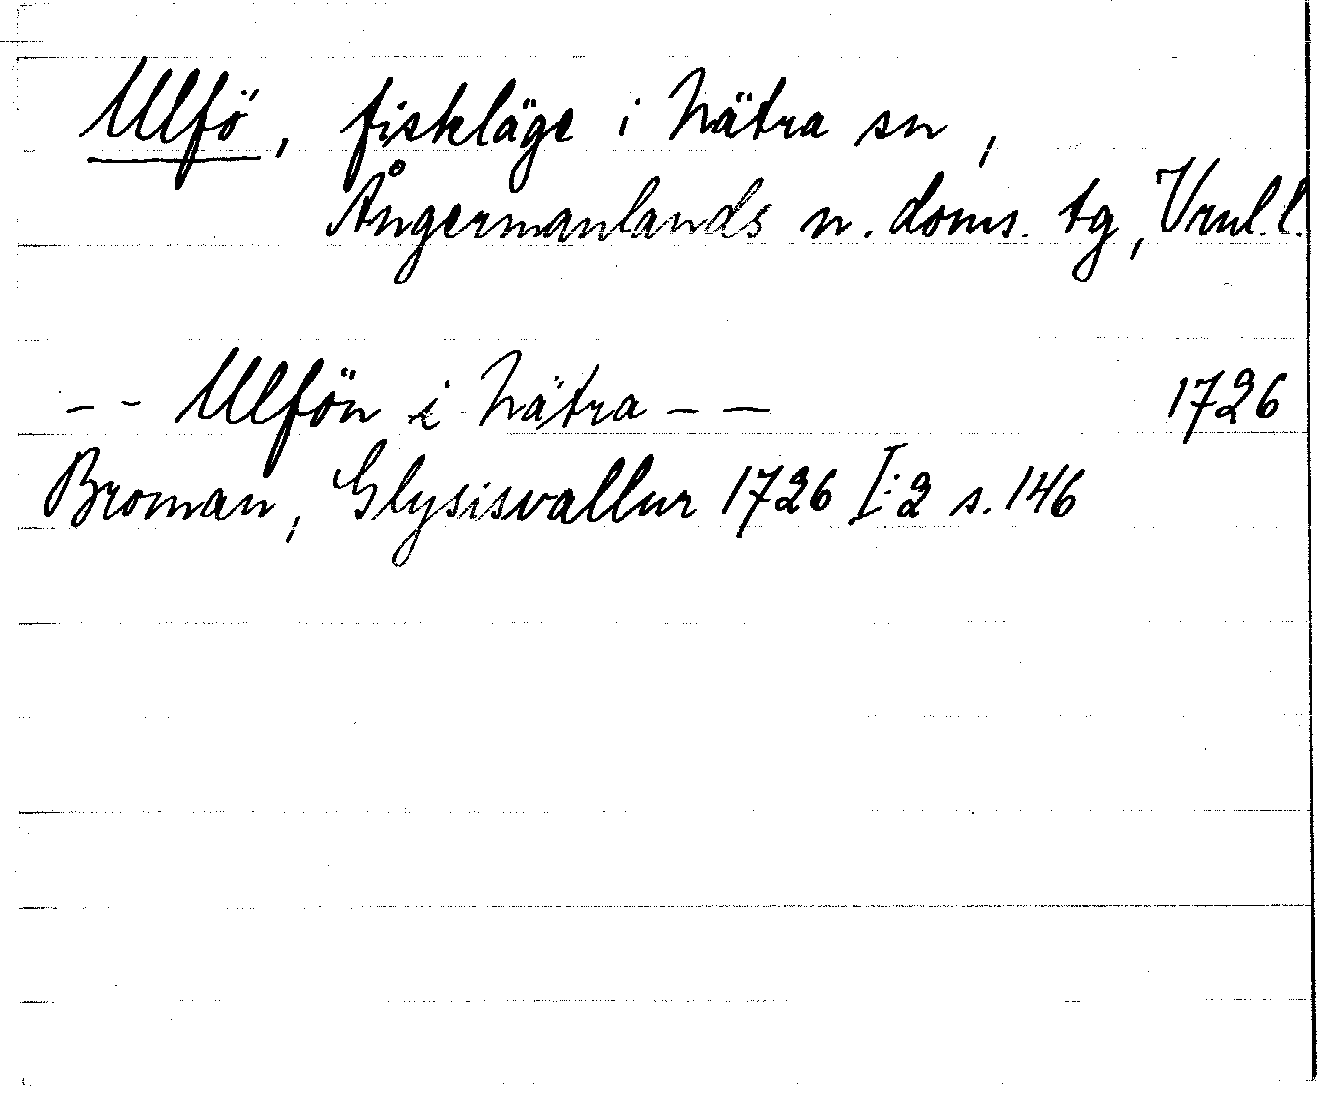 Ulfö, fiskläge i Nätra sn,
Ångermanlands n. doms. tg, Vrnl.l.
-- Ulfön i Nätra -- 1726
Broman, Glysisvallur 1726 I:2 s. 146